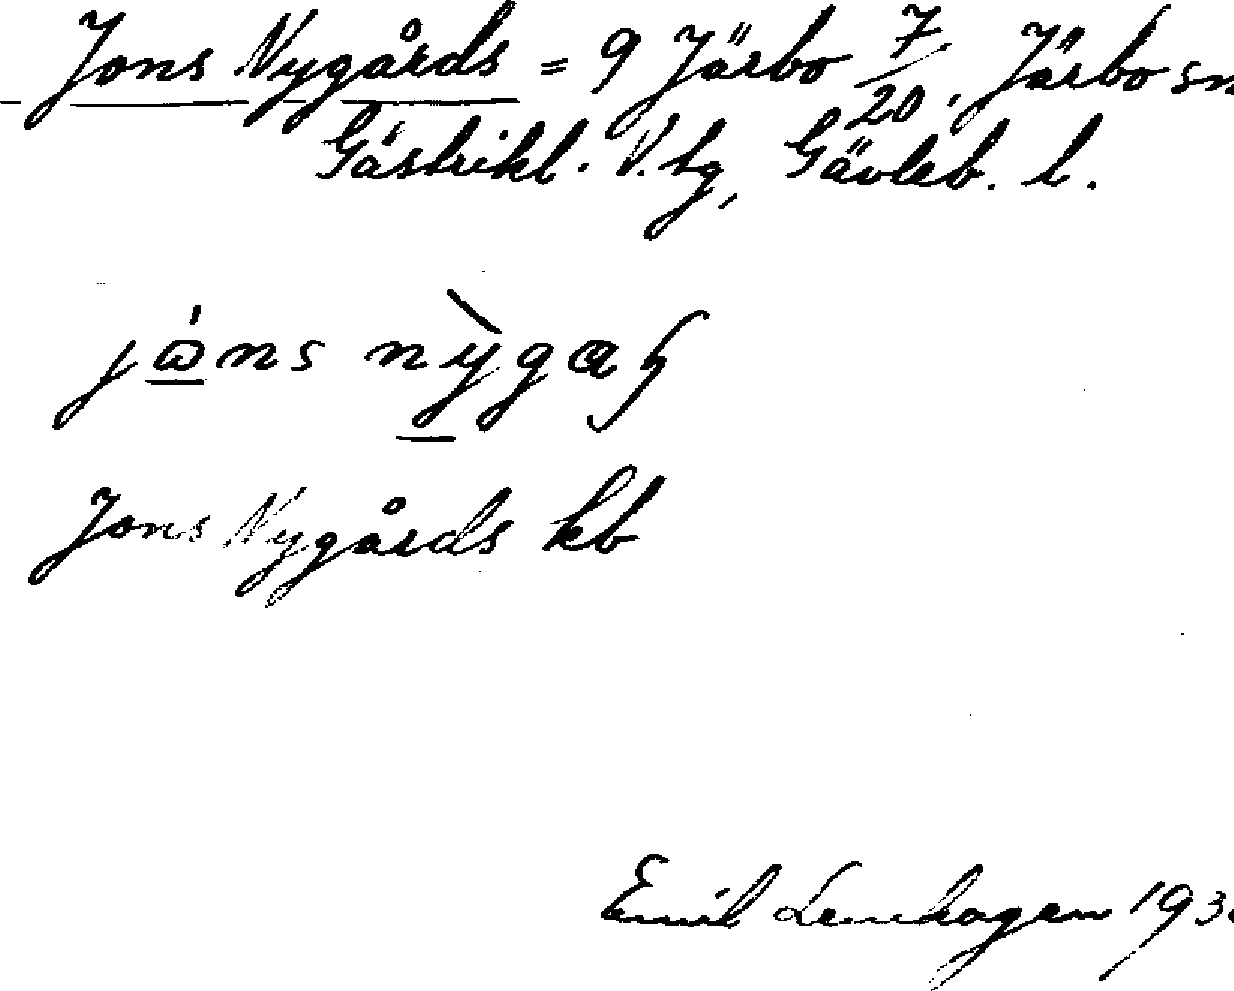 Jons Nygårds = 9 Järbo 7/20, Järbo sn
Gästrikl. V. tg, Gävleb. l.
jons nygaş
Jons Nygårds kb
Emil Lenhagen 193